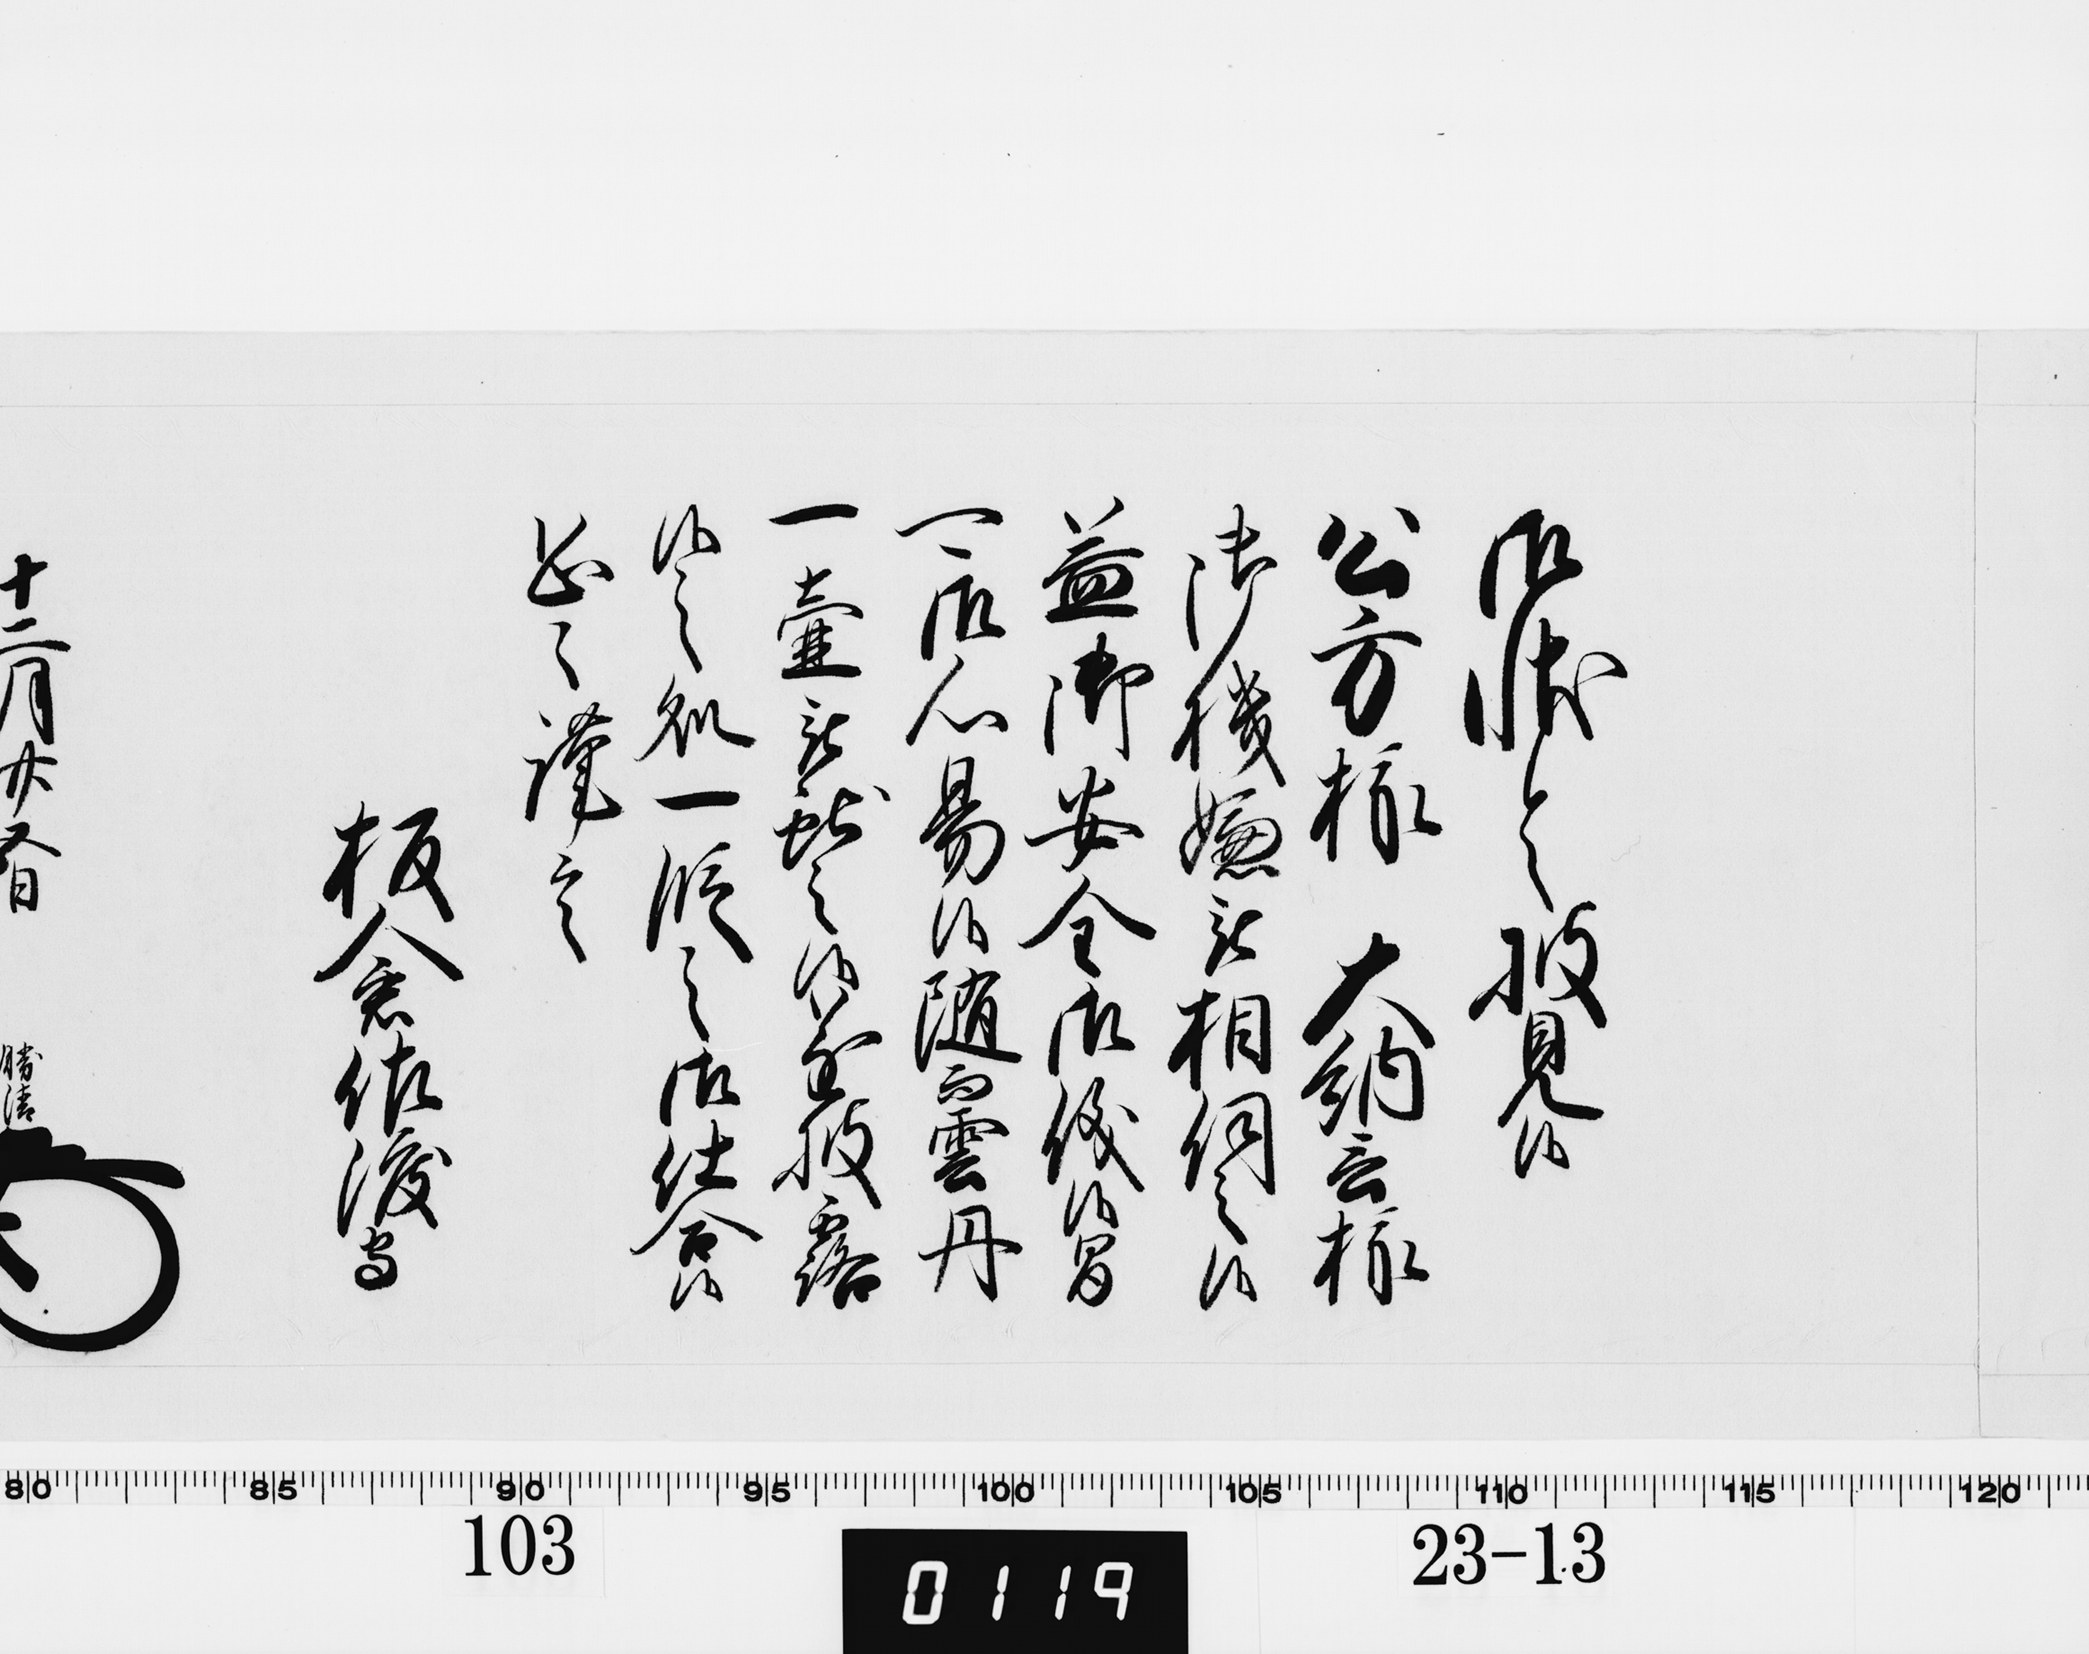 御状令披見候
公方様　大納言様
御機嫌被相伺之候
益御安全御儀候間
可御心易候随而雲丹
一壷被献之候遂披露
候之処一段之御仕合候
恐々謹言
板倉佐渡守
十二月廿八日
勝清
80 85 90 95 100 105 110 115 120
103
0119
23-13